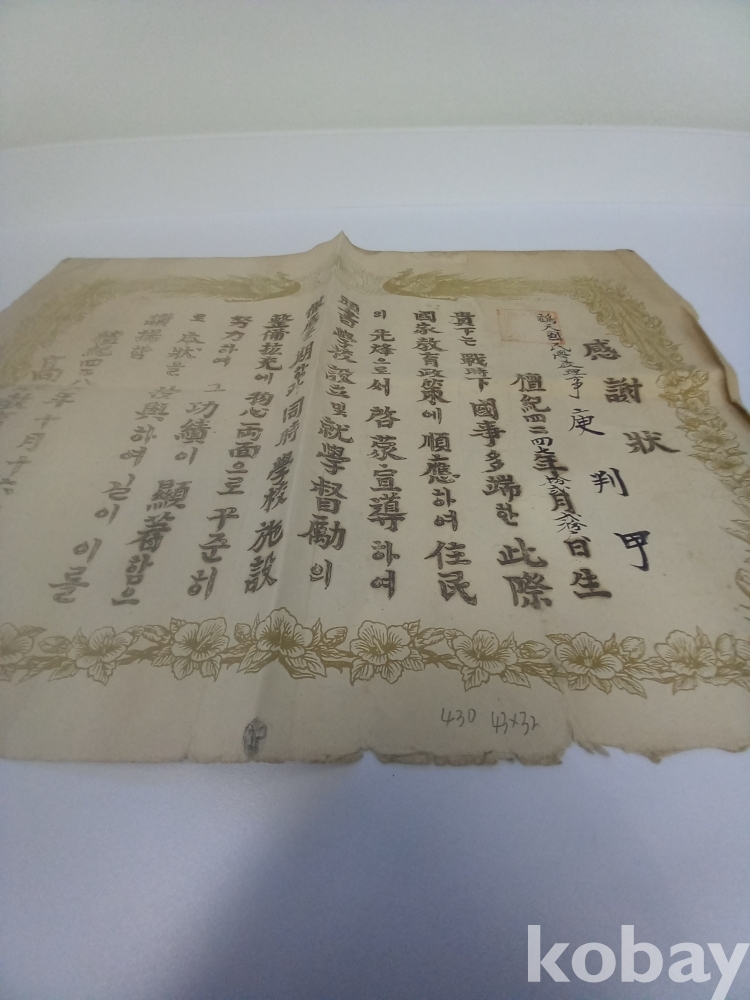 感謝狀
判甲
檀紀四二四七年 月 日生
貴下는 戰時下 國事多端한 此際
國家敎育政策에 順應하여 住民
의 先烽으로서 啓蒙宣導하여
學校設 및 就學督勵의
期 同府 學校施設
整備拡充에 物心両面으로 꾸준히
努力하여 그 功績이 顯著함으
로 玆 하여 길이 이를
讃揚함
檀紀四 八年十月十六
高
430 43×32
kobay